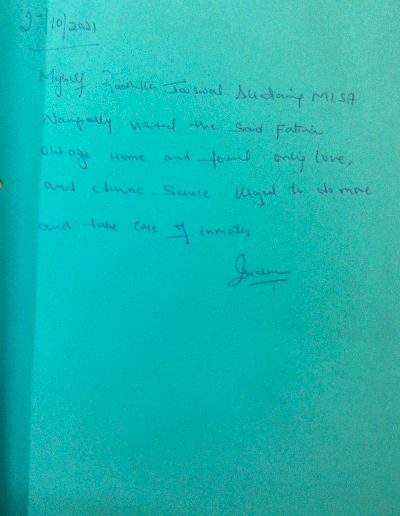 27/10/2021
Myself Radhika Jaiswal Secretary MLSA
Nampally visited the said Fatima
Old age Home and found only love,
and divine Service. Urged to do more
and take care of inmates